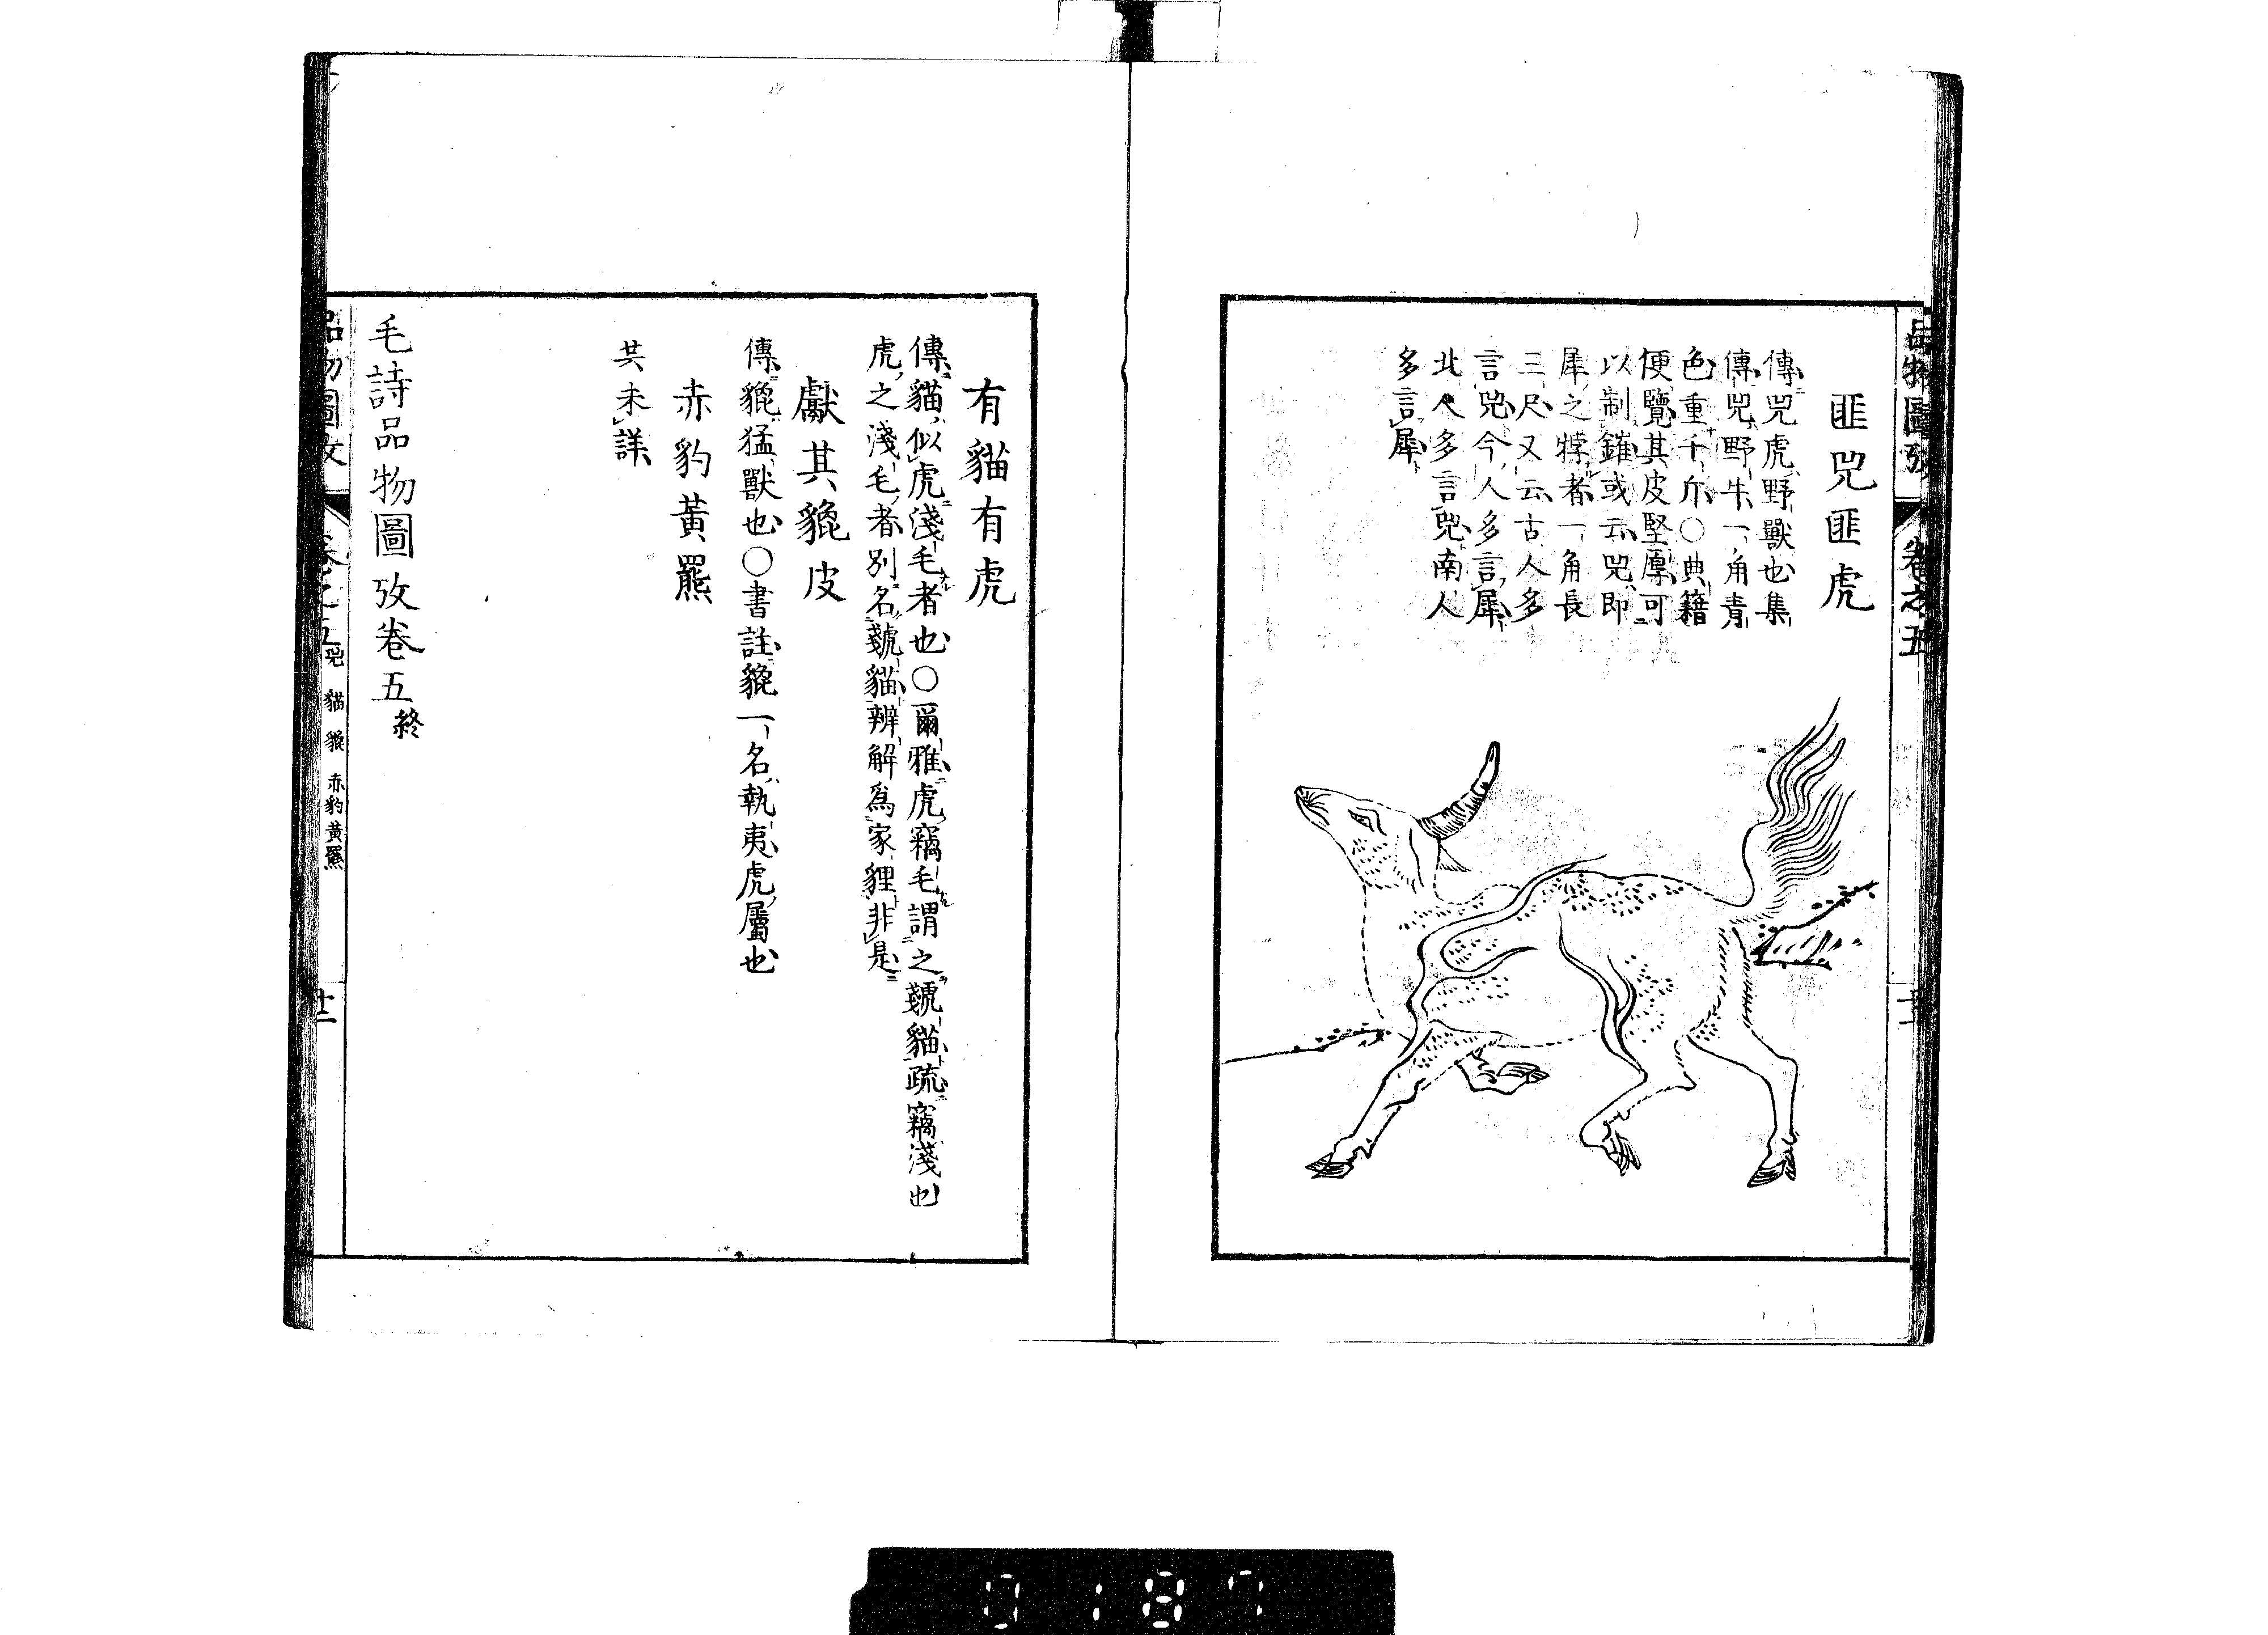 匪兕匪虎
傳兕虎野獸也集
傳兕野牛一角青
色重千斤○典籍
便覽其皮堅厚可
以制鎧或云兕即
犀之牸者一角長
三尺又云古人多
言兕今人多言犀
北人多言兕南人
多言犀
品物圖攷
卷之五
有貓有虎
傳貓似虎淺毛者也○爾雅虎竊毛謂之虦貓疏竊淺也
虎之淺毛者別名虦貓辨解爲家狸非是
獻其貔皮
傳貔猛獸也○書註貔一名執夷虎屬也
赤豹黃羆
共未詳
毛詩品物圖攷卷五終
品物圖攷
卷之五
兕 貓 貔 赤豹黃羆
廿二
0187